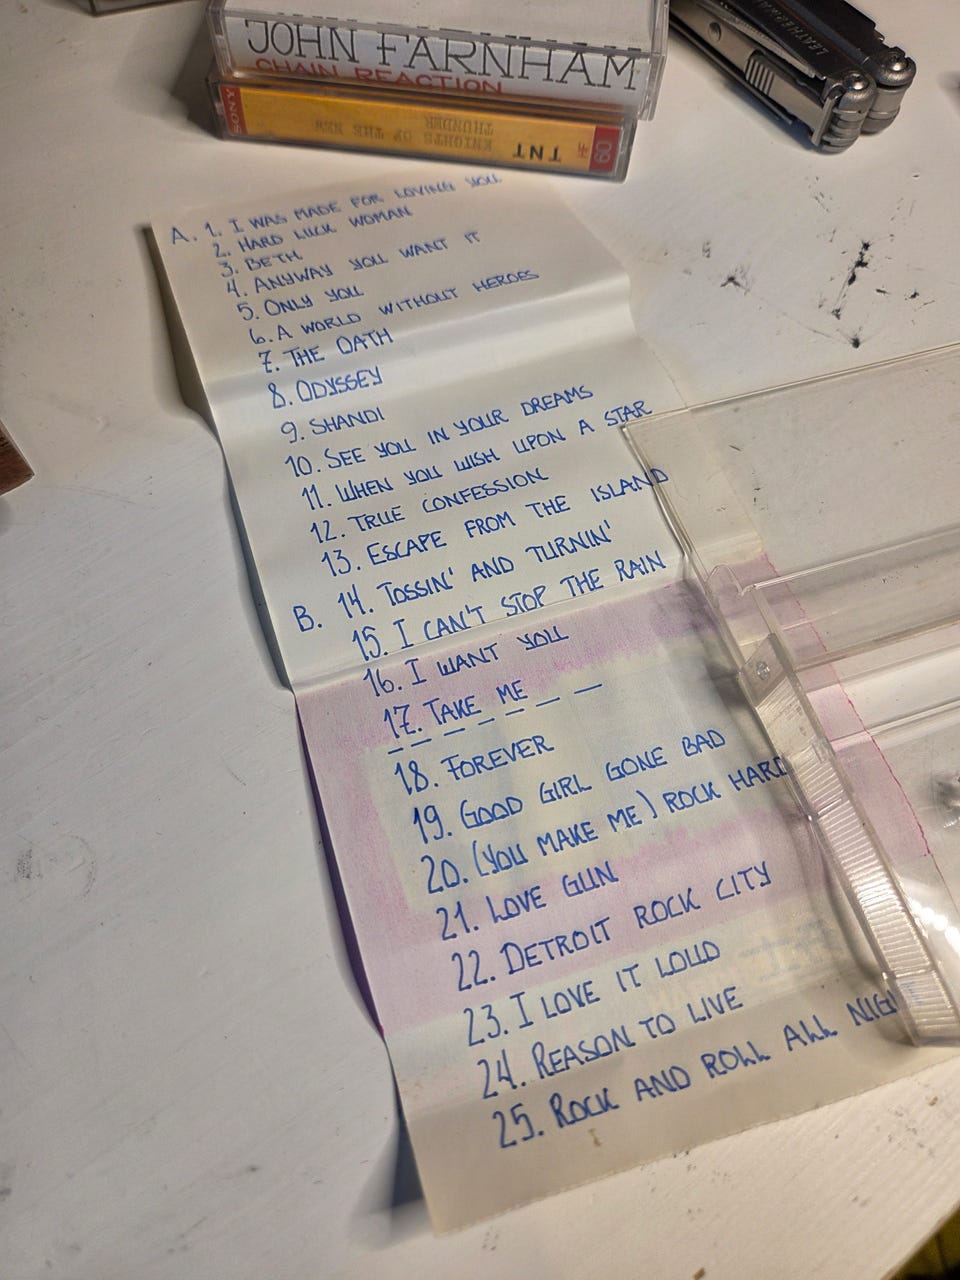 LEATHERMAN
JOHN FARNHAM
CHAIN REACTION
SONY
KNIGHTS OF THE NEW
THUNDER
TNT
60
A. 1. I WAS MADE FOR LOVING YOU
2. HARD LUCK WOMAN
3. BETH
4. ANYWAY YOU WANT IT
5. ONLY YOU
6. A WORLD WITHOUT HEROES
7. THE OATH
8. ODYSSEY
9. SHANDI
10. SEE YOU IN YOUR DREAMS
11. WHEN YOU WISH UPON A STAR
12. TRUE CONFESSION
13. ESCAPE FROM THE ISLAND
B. 14. TOSSIN' AND TURNIN'
15. I CAN'T STOP THE RAIN
16. I WANT YOU
17. TAKE ME _ _
_ _ _ _ _ _
18. FOREVER
19. GOOD GIRL GONE BAD
20. (YOU MAKE ME) ROCK HARD
21. LOVE GUN
22. DETROIT ROCK CITY
23. I LOVE IT LOUD
24. REASON TO LIVE
25. ROCK AND ROLL ALL NIGHT